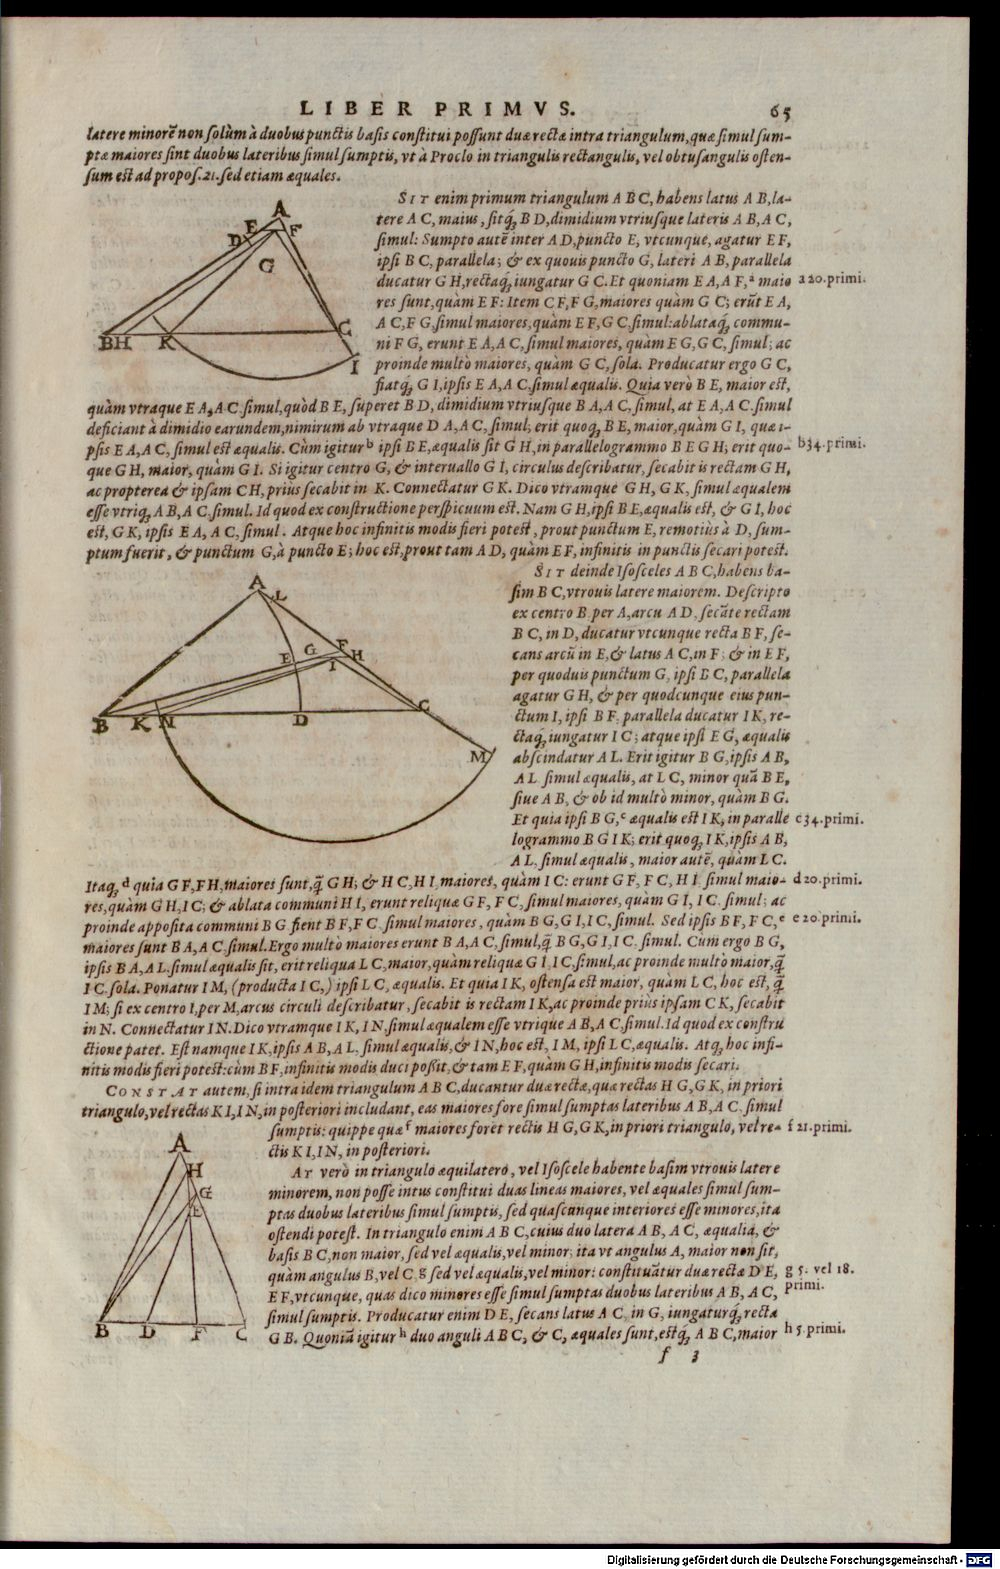 LIBER PRIMVS. 65
latere minorẽ non solùm à duobus punctis basis constitui possunt duæ rectæ intra triangulum, quæ simul sum-
ptæ maiores sint duobus lateribus simul sumptis, vt à Proclo in triangulis rectangulis, vel obtusangulis osten-
sum est ad propos. 21. sed etiam æquales.
SIT enim primum triangulum A B C, habens latus A B, la-
tere A C, maius, sitq́; B D, dimidium vtriusque lateris A B, A C,
simul: Sumpto autẽ inter A D, puncto E, vtcunque, agatur E F,
ipsi B C, parallela; & ex quouis puncto G, lateri A B, parallela
ducatur G H, rectaq́; iungatur G C. Et quoniam E A, A F, ª maio a 20. primi.
res sunt, quàm E F: Item C F, F G, maiores quàm G C; erũt E A,
A C, F G, simul maiores, quàm E F, G C, simul: ablataq́; commu-
ni F G, erunt E A, A C, simul maiores, quàm E G, G C, simul; ac
proinde multò maiores, quàm G C, sola. Producatur ergo G C,
fiatq́; G I, ipsis E A, A C, simul æqualis. Quia verò B E, maior est,
quàm vtraque E A, A C simul, quòd B E, superet B D, dimidium vtriusque B A, A C, simul, at E A, A C. simul
deficiant à dimidio earundem, nimirum ab vtraque D A, A C, simul; erit quoq; B E, maior, quàm G I, quæ i-
psis E A, A C, simul est æqualis. Cùm igitur b ipsi B E, æqualis sit G H, in parallelogrammo B E G H; erit quo- b 34. primi.
que G H, maior, quàm G I. Si igitur centro G, & interuallo G I, circulus describatur, secabit is rectam G H,
ac propterea & ipsam C H, prius secabit in K. Connectatur G K. Dico vtramque G H, G K, simul æqualem
esse vtriq; A B, A C, simul. Id quod ex constructione perspicuum est. Nam G H, ipsi B E, æqualis est, & G I, hoc
est, G K, ipsis E A, A C, simul. Atque hoc infinitis modis fieri potest, prout punctum E, remotiùs à D, sum-
ptum fuerit, & punctum G, à puncto E; hoc est, prout tam A D, quàm E F, infinitis in punctis secari potest.
SIT deinde Isosceles A B C, habens ba-
sim B C, vtrouis latere maiorem. Descripto
ex centro B per A, arcu A D, secãte rectam
B C, in D, ducatur vtcunque recta B F, se-
cans arcũ in E, & latus A C, in F; & in E F,
per quoduis punctum G, ipsi B C, parallela
agatur G H, & per quodcunque eius pun-
ctum I, ipsi B F, parallela ducatur I K, re-
ctaq́; iungatur I C; atque ipsi E G, æqualis
abscindatur A L. Erit igitur B G, ipsis A B,
A L simul æqualis, at L C, minor quã B E,
siue A B, & ob id multò minor, quàm B G.
Et quia ipsi B G, c æqualis est I K, in paralle c 34. primi.
logrammo B G I K; erit quoq; I K, ipsis A B,
A L, simul æqualis, maior autẽ, quàm L C.
Itaq; d quia G F, F H, maiores sunt, q̃ G H; & H C, H I, maiores, quàm I C: erunt G F, F C, H I simul maio- d 20. primi.
res, quàm G H, I C; & ablata communi H I, erunt reliquæ G F, F C, simul maiores, quàm G I, I C simul; ac
proinde apposita communi B G fient B F, F C simul maiores, quàm B G, G I, I C, simul. Sed ipsis B F, F C, e e 20. primi.
maiores sunt B A, A C, simul. Ergo multò maiores erunt B A, A C, simul, q̃ B G, G I, I C. simul. Cum ergo B G,
ipsis B A, A L simul æqualis sit, erit reliqua L C, maior, quàm reliquæ G I, I C, simul, ac proinde multò maior, q̃
I C, sola. Ponatur I M, (producta I C,) ipsi L C, æqualis. Et quia I K, ostensa est maior, quàm L C, hoc est, q̃
I M; si ex centro I, per M, arcus circuli describatur, secabit is rectam I K, ac proinde priùs ipsam C K, secabit
in N. Connectatur I N. Dico vtramque I K, I N, simul æqualem esse vtrique A B, A C, simul. Id quod ex constru
ctione patet. Est namque I K, ipsis A B, A L, simul æqualis, & I N, hoc est, I M, ipsi L C, æqualis. Atq; hoc infi-
nitis modis fieri potest: cùm B F, infinitis modis duci possit, & tam E F, quàm G H, infinitis modis secari.
CONSTAT autem, si intra idem triangulum A B C, ducantur duæ rectæ, quæ rectas H G, G K, in priori
triangulo, vel rectas K I, I N, in posteriori includant, eas maiores fore simul sumptas lateribus A B, A C simul
sumptis: quippe quæ f maiores forẽt rectis H G, G K, in priori triangulo, vel re- f 21. primi.
ctis K I, I N, in posteriori.
AT verò in triangulo æquilatero, vel Isoscele habente basim vtrouis latere
minorem, non posse intus constitui duas lineas maiores, vel æquales simul sum-
ptas duobus lateribus simul sumptis, sed quascunque interiores esse minores, ita
ostendi potest. In triangulo enim A B C, cuius duo latera A B, A C, æqualia, &
basis B C, non maior, sed vel æqualis, vel minor; ita vt angulus A, maior non sit,
quàm angulus B, vel C, g sed vel æqualis, vel minor: constituãtur duæ rectæ D E, g 5. vel 18.
E F, vtcunque, quas dico minores esse simul sumptas duobus lateribus A B, A C, primi.
simul sumptis. Producatur enim D E, secans latus A C, in G, iungaturq́; recta
G B. Quoniã igitur h duo anguli A B C, & C, æquales sunt, estq́; A B C, maior h 5. primi.
f 3
A
E
F
D
G
B H K C
I
A
L
F
G
E
H
I
B K N D C
M
A
H
G
E
B D F C
Digitalisierung gefördert durch die Deutsche Forschungsgemeinschaft - DFG